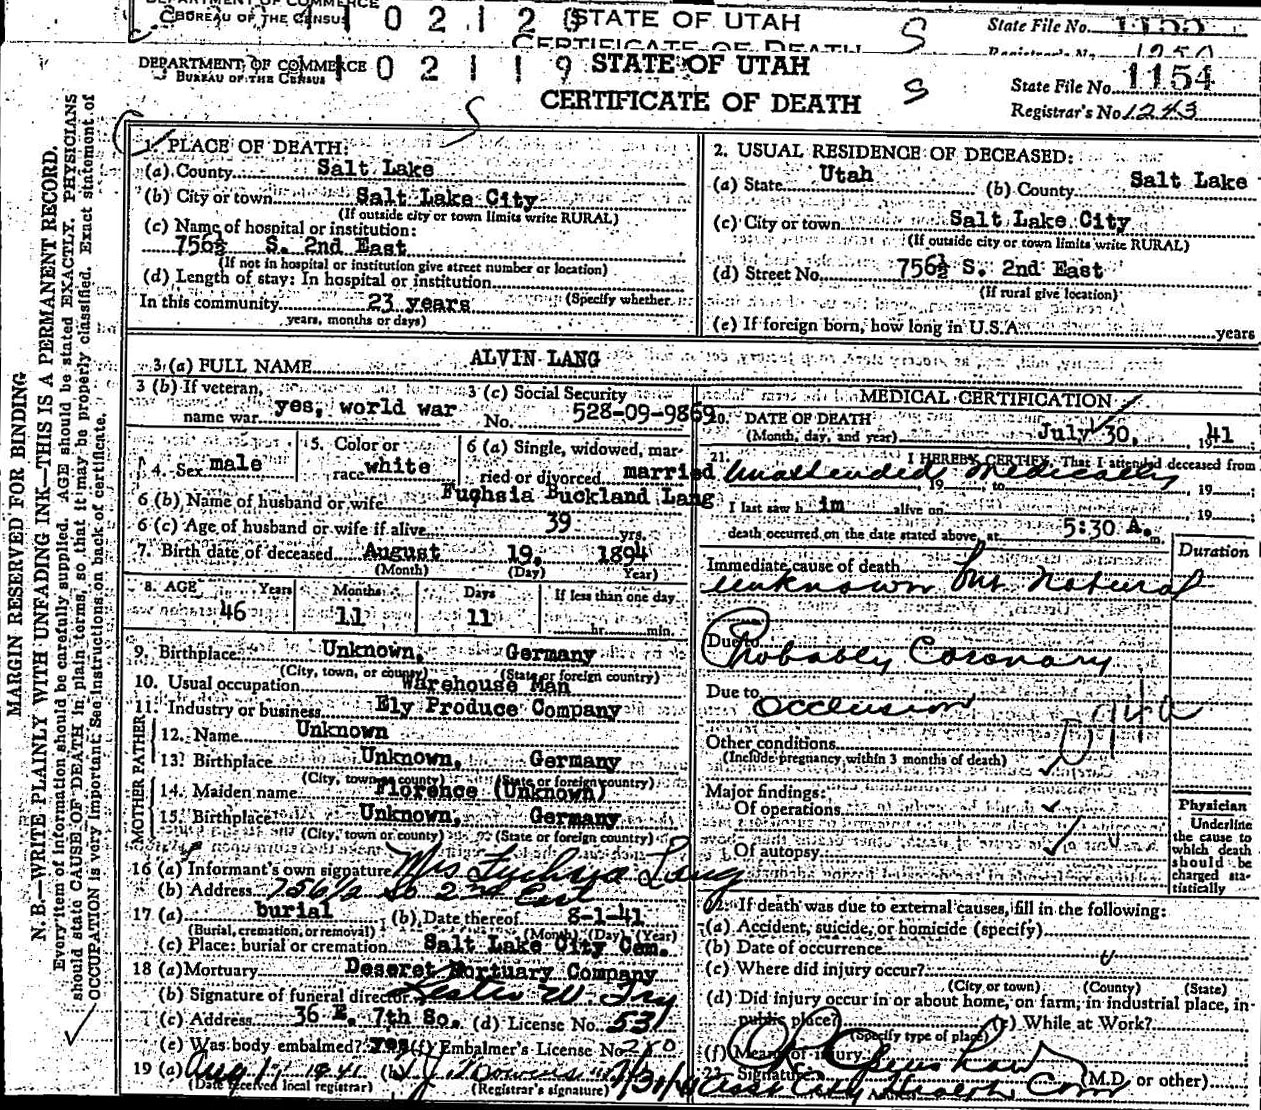 DEPARTMENT OF COMMERCE
BUREAU OF THE CENSUS
1 0 2 1 2 0
STATE OF UTAH
CERTIFICATE OF DEATH
S
State File No. 1155
Registrar's No. 1250
DEPARTMENT OF COMMERCE
BUREAU OF THE CENSUS
1 0 2 1 1 9
STATE OF UTAH
CERTIFICATE OF DEATH
S
State File No. 1154
Registrar's No. 1243
MARGIN RESERVED FOR BINDING
N. B.—WRITE PLAINLY WITH UNFADING INK—THIS IS A PERMANENT RECORD.
Every item of information should be carefully supplied. AGE should be stated EXACTLY. PHYSICIANS
should state CAUSE OF DEATH in plain terms, so that it may be properly classified. Exact statement of
OCCUPATION is very important. See instructions on back of certificate.
1. PLACE OF DEATH:
(a) County Salt Lake
(b) City or town Salt Lake City
(If outside city or town limits write RURAL)
(c) Name of hospital or institution:
756½ S. 2nd East
(If not in hospital or institution give street number or location)
(d) Length of stay: In hospital or institution
In this community 23 years (Specify whether
years, months or days)
2. USUAL RESIDENCE OF DECEASED:
(a) State Utah (b) County Salt Lake
(c) City or town Salt Lake City
(If outside city or town limits write RURAL)
(d) Street No. 756½ S. 2nd East
(If rural give location)
(e) If foreign born, how long in U.S.A. years
3 (a) FULL NAME ALVIN LANG
3 (b) If veteran, name war yes, world war
3 (c) Social Security No. 528-09-9869
4. Sex male
5. Color or race white
6 (a) Single, widowed, married or divorced married
6 (b) Name of husband or wife Fuchsia Buckland Lang
6 (c) Age of husband or wife if alive 39 yrs.
7. Birth date of deceased August 19, 1894
(Month) (Day) (Year)
8. AGE Years Months Days If less than one day
46 11 11 hr. min.
9. Birthplace Unknown, Germany
(City, town, or county) (State or foreign country)
10. Usual occupation Warehouse Man
11. Industry or business Ely Produce Company
FATHER
12. Name Unknown
13. Birthplace Unknown, Germany
(City, town or county) (State or foreign country)
MOTHER
14. Maiden name Florence (Unknown)
15. Birthplace Unknown, Germany
(City, town or county) (State or foreign country)
16 (a) Informant's own signature Mrs Fuchsia Lang
(b) Address 756½ So 2nd East
17 (a) burial (b) Date thereof 8-1-41
(Burial, cremation, or removal) (Month) (Day) (Year)
(c) Place: burial or cremation Salt Lake City Cem.
18 (a) Mortuary Deseret Mortuary Company
(b) Signature of funeral director Lester W. Fry
(c) Address 36 E. 7th So. (d) License No. 531
(e) Was body embalmed? yes (f) Embalmer's License No. 280
19 (a) Aug 1, 1941 (b)
(Date received local registrar) (Registrar's signature)
MEDICAL CERTIFICATION
20. DATE OF DEATH
(Month, day, and year) July 30, 1941
21. I HEREBY CERTIFY, That I attended deceased from
Unattended Medically
19 to , 19 ;
I last saw h im alive on , 19 ;
death occurred on the date stated above, at 5:30 A. m.
Duration
Immediate cause of death
unknown but natural
Due to Probably Coronary
Due to Occlusion
Other conditions
(Include pregnancy within 3 months of death)
Major findings:
Of operations
Of autopsy
Physician
Underline
the cause to
which death
should be
charged sta-
tistically
22. If death was due to external causes, fill in the following:
(a) Accident, suicide, or homicide (specify)
(b) Date of occurrence
(c) Where did injury occur?
(City or town) (County) (State)
(d) Did injury occur in or about home, on farm, in industrial place, in
public place? (e) While at Work?
(Specify type of place)
(f) Means of injury
23. Signature (M.D. or other)
Asst City Health Com